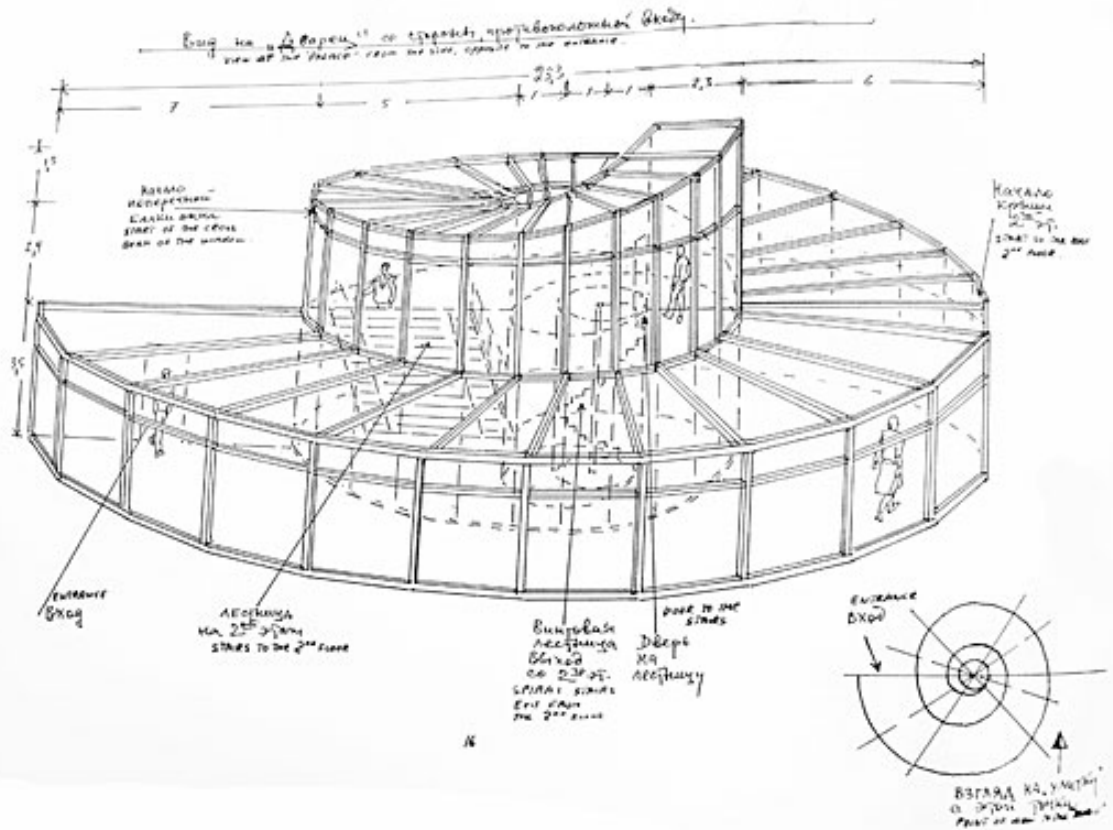 Вид на „Дворец" со стороны, противоположной входу.
VIEW AT THE "PALACE" FROM THE SIDE, OPPOSITE TO THE ENTRANCE.
7
5
1
1
1
2,3
6
Начало
поперечной
балки окна
START OF THE CROSS
BEAM OF THE WINDOW
Начало
крыши
START OF THE
2nd FLOOR
1,5
2,4
3,5
ENTRANCE
Вход
лестница
на 2ой этаж
STAIRS TO THE 2nd FLOOR
Винтовая
лестница
Выход
со 2го эт.
SPIRAL STAIRS
EXIT FROM
THE 2nd FLOOR
DOOR TO THE
STAIRS
Дверь
на
лестницу
16
ENTRANCE
ВХОД
ВЗГЛЯД НА „УЛИТКУ"
с этой точки
POINT OF VIEW